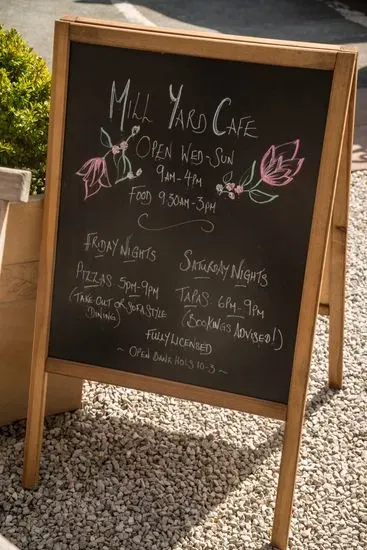 Mill Yard Cafe
Open Wed-Sun
9am-4pm
Food 9:30am-3pm
Friday Nights
Pizzas 5pm-9pm
(Take out or sofa style
dining)
Saturday Nights
Tapas 6pm-9pm
(Bookings advised!)
Fully Licensed
~ Open Bank Hols 10-3 ~